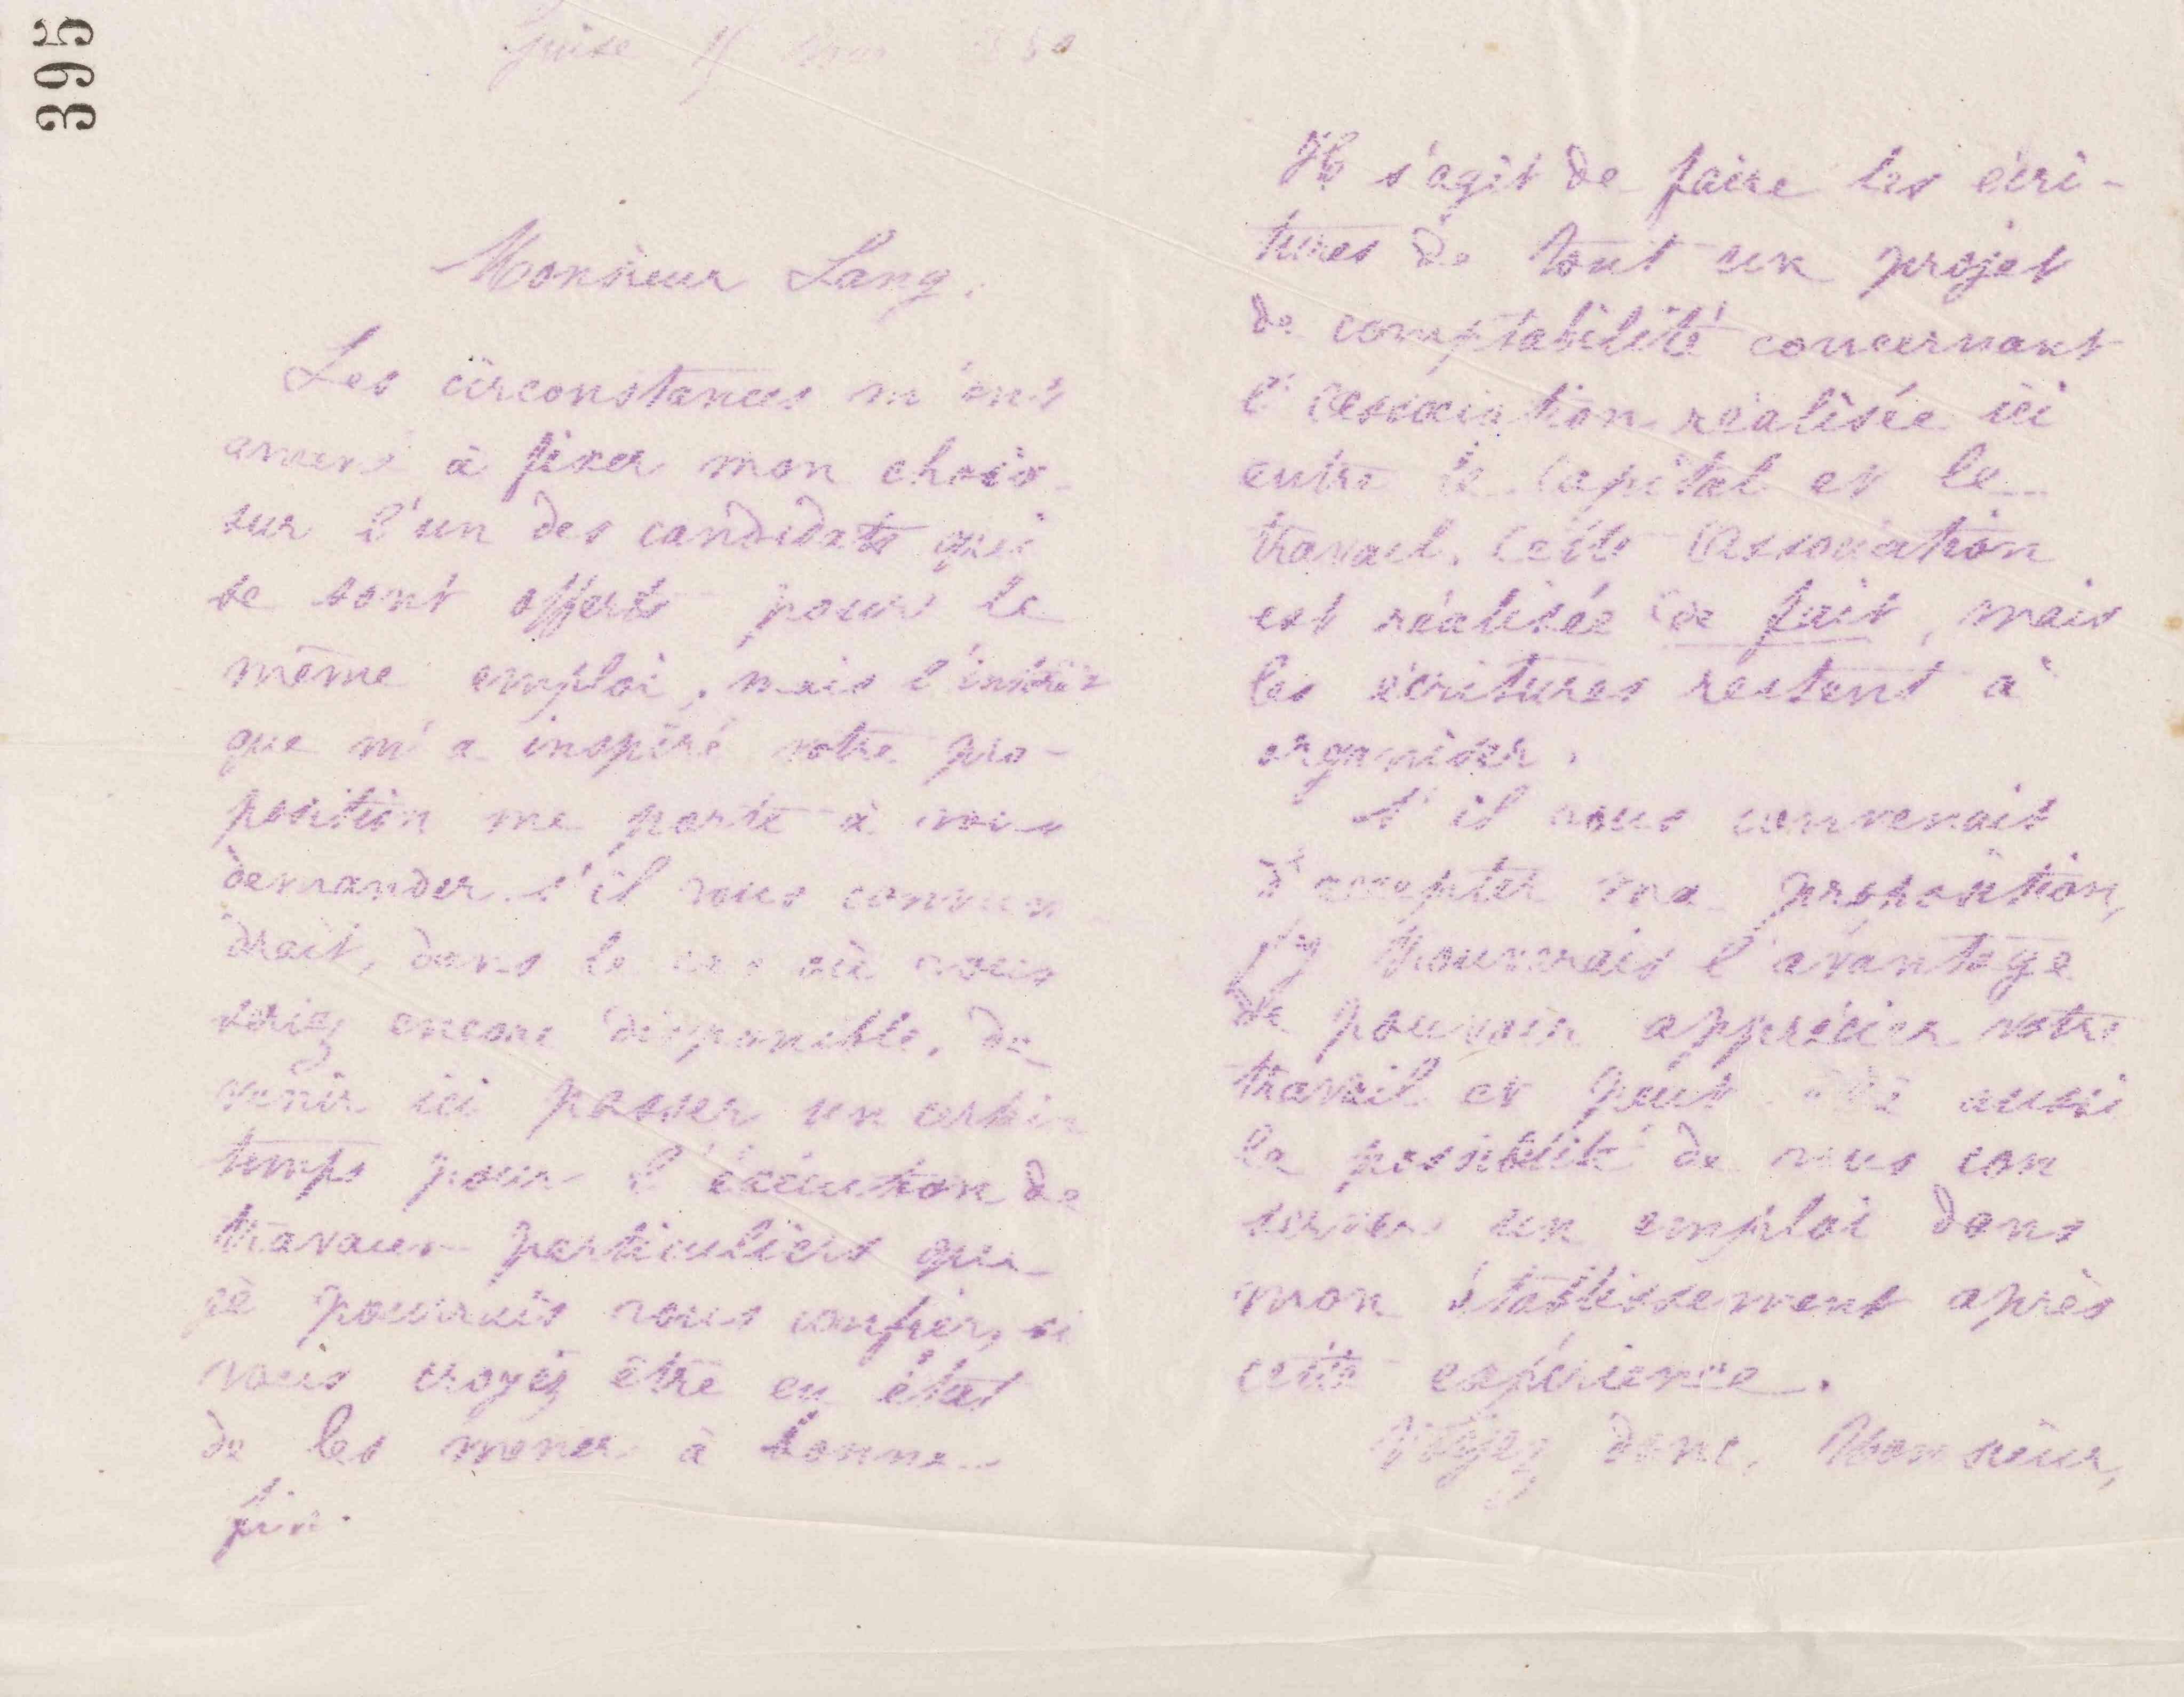 395
Guise 15
Monsieur Lang.
Les circonstances m'ont
amené à fixer mon choix
sur l'un des candidats qui
se sont offerts pour le
même emploi, mais l'intérêt
que m'a inspiré votre pro-
position me porte à vous
demander s'il vous convien
drait, dans le cas où vous
seriez encore disponible, de
venir ici passer un certain
temps pour l'exécution de
travaux particuliers que
je pourrais vous confier, si
vous croyez être en état
de les mener à bonne
fin.
Il s'agit de faire les écri-
tures de tout un projet
de comptabilité concernant
l'association réalisée ici
entre le Capital et le
travail. Cette Association
est réalisée de fait, mais
les écritures restent à
organiser.
S'il vous convenait
d'accepter ma proposition,
j'y trouverais l'avantage
de pouvoir apprécier votre
travail et peut-être aussi
la possibilité de vous con
server un emploi dans
mon établissement après
cette expérience.
Voyez donc, Monsieur,